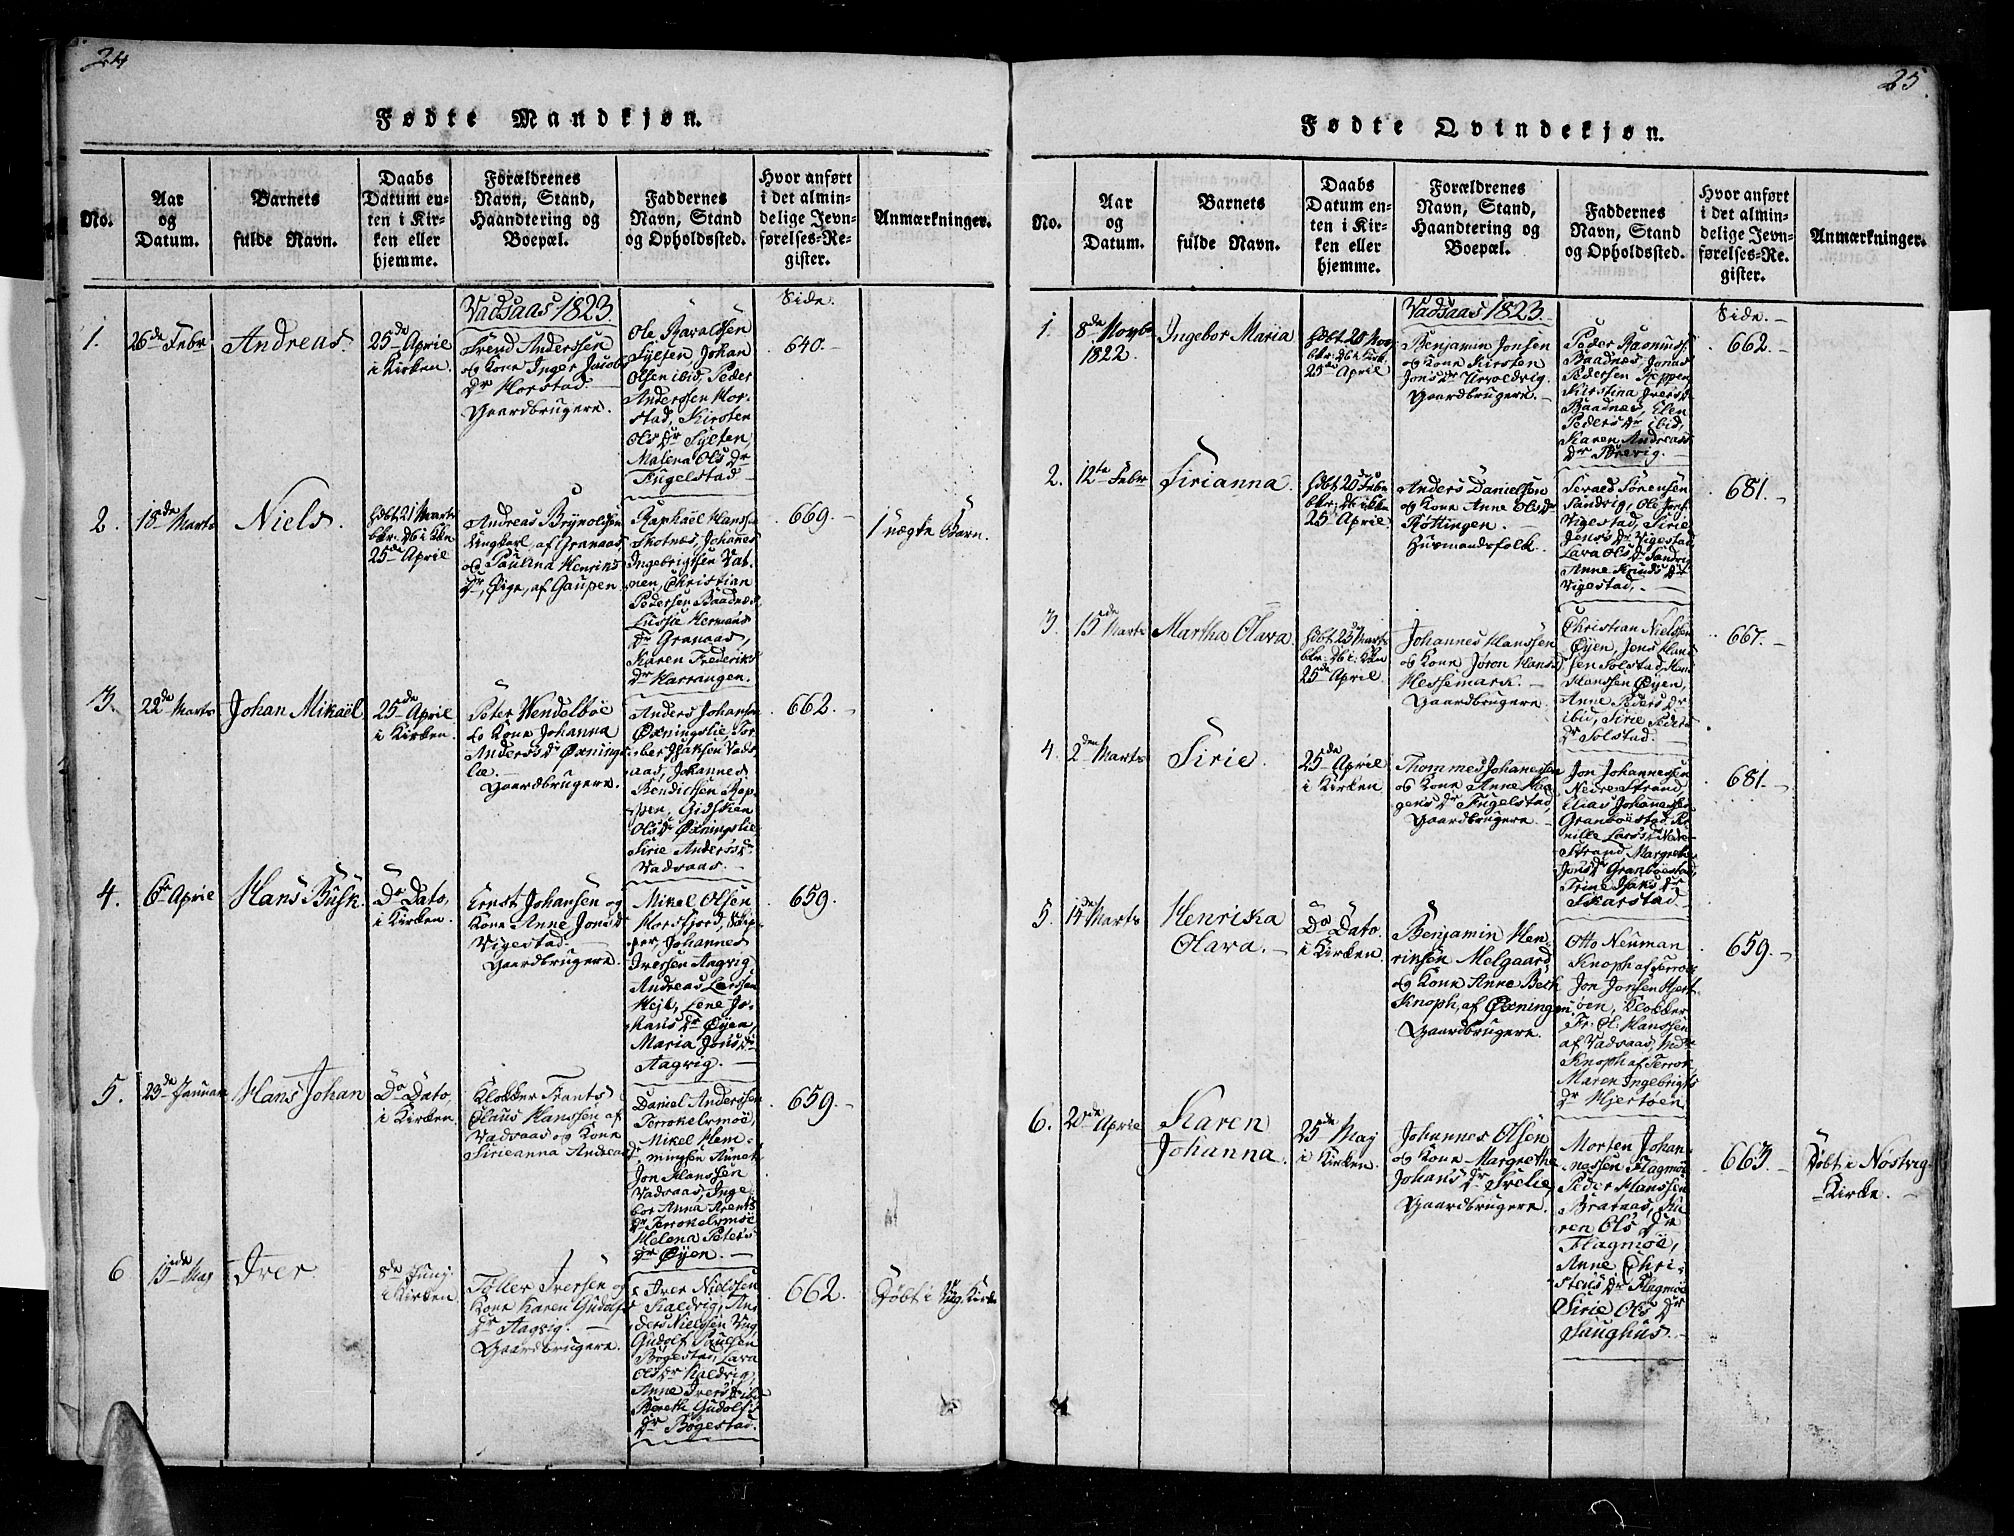 24
Fødte Mandkjøn.
No.
Aar
og
Datum.
Barnets
fulde Navn.
Daabs
Datum en-
ten i Kir-
ken eller
hjemme.
Forældrenes
Navn, Stand,
Haandtering og
Boepæl.
Faddernes
Navn, Stand
og Opholdssted.
Hvor anført
i det almin-
delige Jevn-
førelses-Re-
gister.
Anmærkninger.
Vadsaas 1823.
Side.
1.
26de Febr
Andreas.
25de April
i Kirken.
Trend Anderssen
og Kone Inger Jacobs
Dr Horstad.
Gaardbrugere.
Ole Olsen
Sylten, Johan
Olsen ibid, Peder
Anderssen Hor-
stad, Kirsten
Ols Dr Sylten,
Malena Ols Dr
Fugelstad
640.
2.
18de Marts
Niels.
hdbt 21 Marts
bkr. D6 i Kkn
25de April
Andreas Brynolfsen
Ungkarl, af Granaas,
og Paulina Henriks
Dr, Pige, af Gaupen.
Raphaël Hanssen
Skotnæs, Johanes
Ingebrigtsen Vat-
nen, Christian
Pedersen Baadnæs,
Lussie Hermans
Dr Granaas,
Karen Frederiks
Dr Harrangen.
669.
1 uægte Barn.
3.
22de Marts
Johan Mikaël
25de April
i Kirken.
Peter Wendelboe
og Kone Johanna
Anders Dr Øxnings-
lie.
Gaardbrugere.
Anders Johansen
Øxningslie, Tor-
ber Isaksen Vads-
aas, Johannes
Bendichsen Rep-
pen, Gidsken
Ols Dr Øxningslie
Sirie Anders Dr
Vadsaas.
662.
4.
6te April
Hans Busk
Do Dato,
i Kirken.
Ernst Johansen og
Kone Anne Jons Dr
Vigestad.
Gaardbrugere.
Mikel Olsen
Horsfjord, Skip-
per, Johannes
Iverssen Aagvig
Andreas Larssen
Hejl, Lene Jo-
hans Dr Øyen,
Maria Jons Dr
Aagvig.
659.
5.
23de Januar
Hans Johan
Do Dato,
i Kirken.
Klokker Frants
Olaus Hanssen af
Vadsaas og Kone
Sirieanna Andreas
Dr
Daniel Anderssen
Terrokelvmoe,
Mikel Hem-
mingsen Aunet
Jon Hanssen
Vadsaas, Inge-
bor Anna Arents
Dr Terrokelvmoe
Helena Peters
Dr Øyen.
659.
6
15de Maj
Iver.
8de Junij
i Kirken
Töller Iversen og
Kone Karen Gudolfs
Dr Aagvig.
Gaardbrugere.
Iver Nielssen
Kaldvig, An-
ders Nielssen Ung
Gudolf Paulsen
Bøgestad, Lava
Ols Dr Kaldvig,
Anne Ivers Dr ibid
Bereth Gudolfs
Dr Bøgestad.
662.
Döbt i Vig Kirke
25.
Fødte Qvindekjøn.
No.
Aar
og
Datum.
Barnets
fulde Navn.
Daabs
Datum en-
ten i Kir-
ken eller
hjemme.
Forældrenes
Navn, Stand,
Haandtering og
Boepæl.
Faddernes
Navn, Stand
og Opholdssted.
Hvor anført
i det almin-
delige Jevn-
førelses-Re-
gister.
Anmærkninger.
Vadsaas 1823.
Side.
1.
8de Novbr
1822.
Ingebor Maria
hdbt 20 Nov
bkr. D6 i Kkn
25de April
Benjamin Jonsen
og Kone Kirsten
Jons Dr Urvoldvig.
Gaardbrugere.
Peder Rasmuss.
Baadnæs, Jonas
Pedersen Reppen,
Kirstina Ivers Dr
Baadnæs, Elen
Peders Dr ibid,
Karen Andreas
Dr Storvig.
662.
2.
12te Febr
Sirianna.
hdbt 20 Febr
bkr. D6 i Kkn
25de April
Anders Danielsen
og Kone Anne Ols Dr
Röttingen.
Husmandsfolk.
Seraed Sörensen
Sandvig, Ole Jons.
Vigestad, Sirie
Jens Dr Vigestad
Lava Ols Dr Sandvig
Anne Knuds Dr
Vigestad.
681.
3.
15de Marts
Martha Olava
hdbt 23de Marts
bkr. D6 i Kkn
25de April.
Johannes Hanssen
og Kone Jøron Hans Dr
Hessemark.
Gaardbrugere.
Christian Nielssen
Øyen, Jens Han-
sen Solstad, Hans
Hanssen Øyen,
Anne Peders Dr
ibid, Sirie Peders
Dr Solstad.
667.
4.
2den Marts
Sirie.
25de April
i Kirken
Thommes Johanessen
og Kone Anne Haa-
gens Dr Fugelstad
Gaardbrugere.
Jon Johannessen
Nedre Strand,
Elias Johanessen
Granböestad, Per-
nille Lars Dr Nedre-
Strand, Margreth
Jons Dr Granböestad,
Trine Isaks Dr
Skarstad.
681.
5.
14de Marts
Henrikka
Olava.
Do Dato
i Kirken.
Benjamin Hen-
riksen Melgaard
og Kone Anne Beth
Knoph, af Øxningen
Gaardbrugere.
Otto Neuman
Knoph af Terrok
Jon Jonsen Hjert-
øen, Klokker
Fr. Ol. Hanssen
af Vadsaas, Md.
Knoph af Terrok
Maren Ingebrigts
Dr Hjertøen
659.
6.
20de April
Karen
Johanna.
25de Maj
i Kirken.
Johannes Olsen
og Kone Margrethe
Johans Dr Trelie,
Gaardbrugere.
Morten Johan-
nessen Flagmoe
Peder Hanssen
Brataas, Ka-
ren Ols Dr
Flagmoe,
Anne Chri-
stens Dr Flagmoe
Sirie Ols Dr
Saughus.
663.
Döbt i Nöstvig
Kirke.